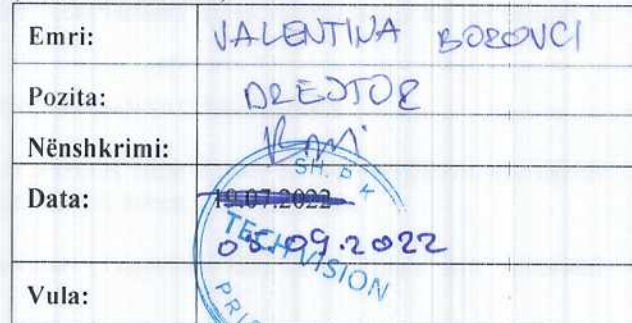 Emri: VALENTINA BOROVCI
Pozita: DREJTOR
Nënshkrimi:
Data: 19.07.2022
05.09.2022
Vula:
SH. P. K
TECH VISION